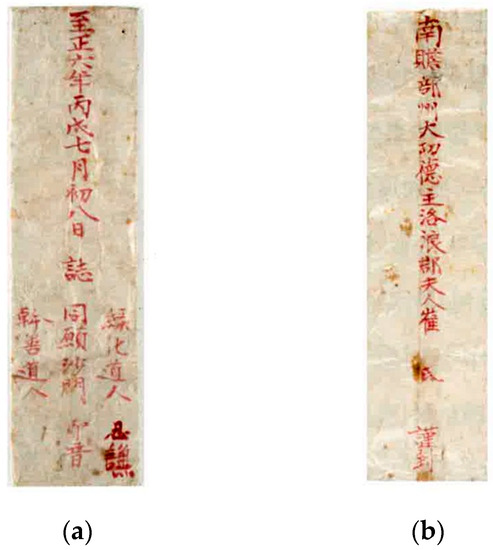 至正六年丙戌七月初八日 誌
緣化道人 謙
同願沙門 印音
幹善道人
(a)
南贍部州大功德主洛浪郡夫人崔 氏 謹封
(b)